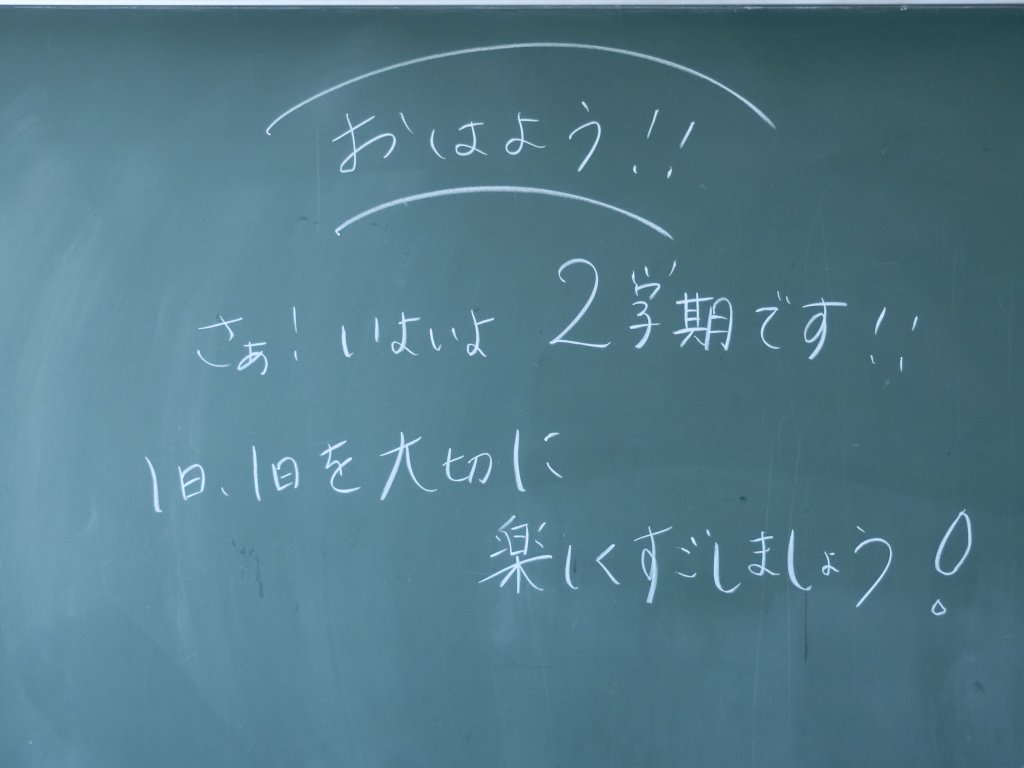 おはよう!!
さぁ!いよいよ2学期です!!
1日、1日を大切に
楽しくすごしましょう!